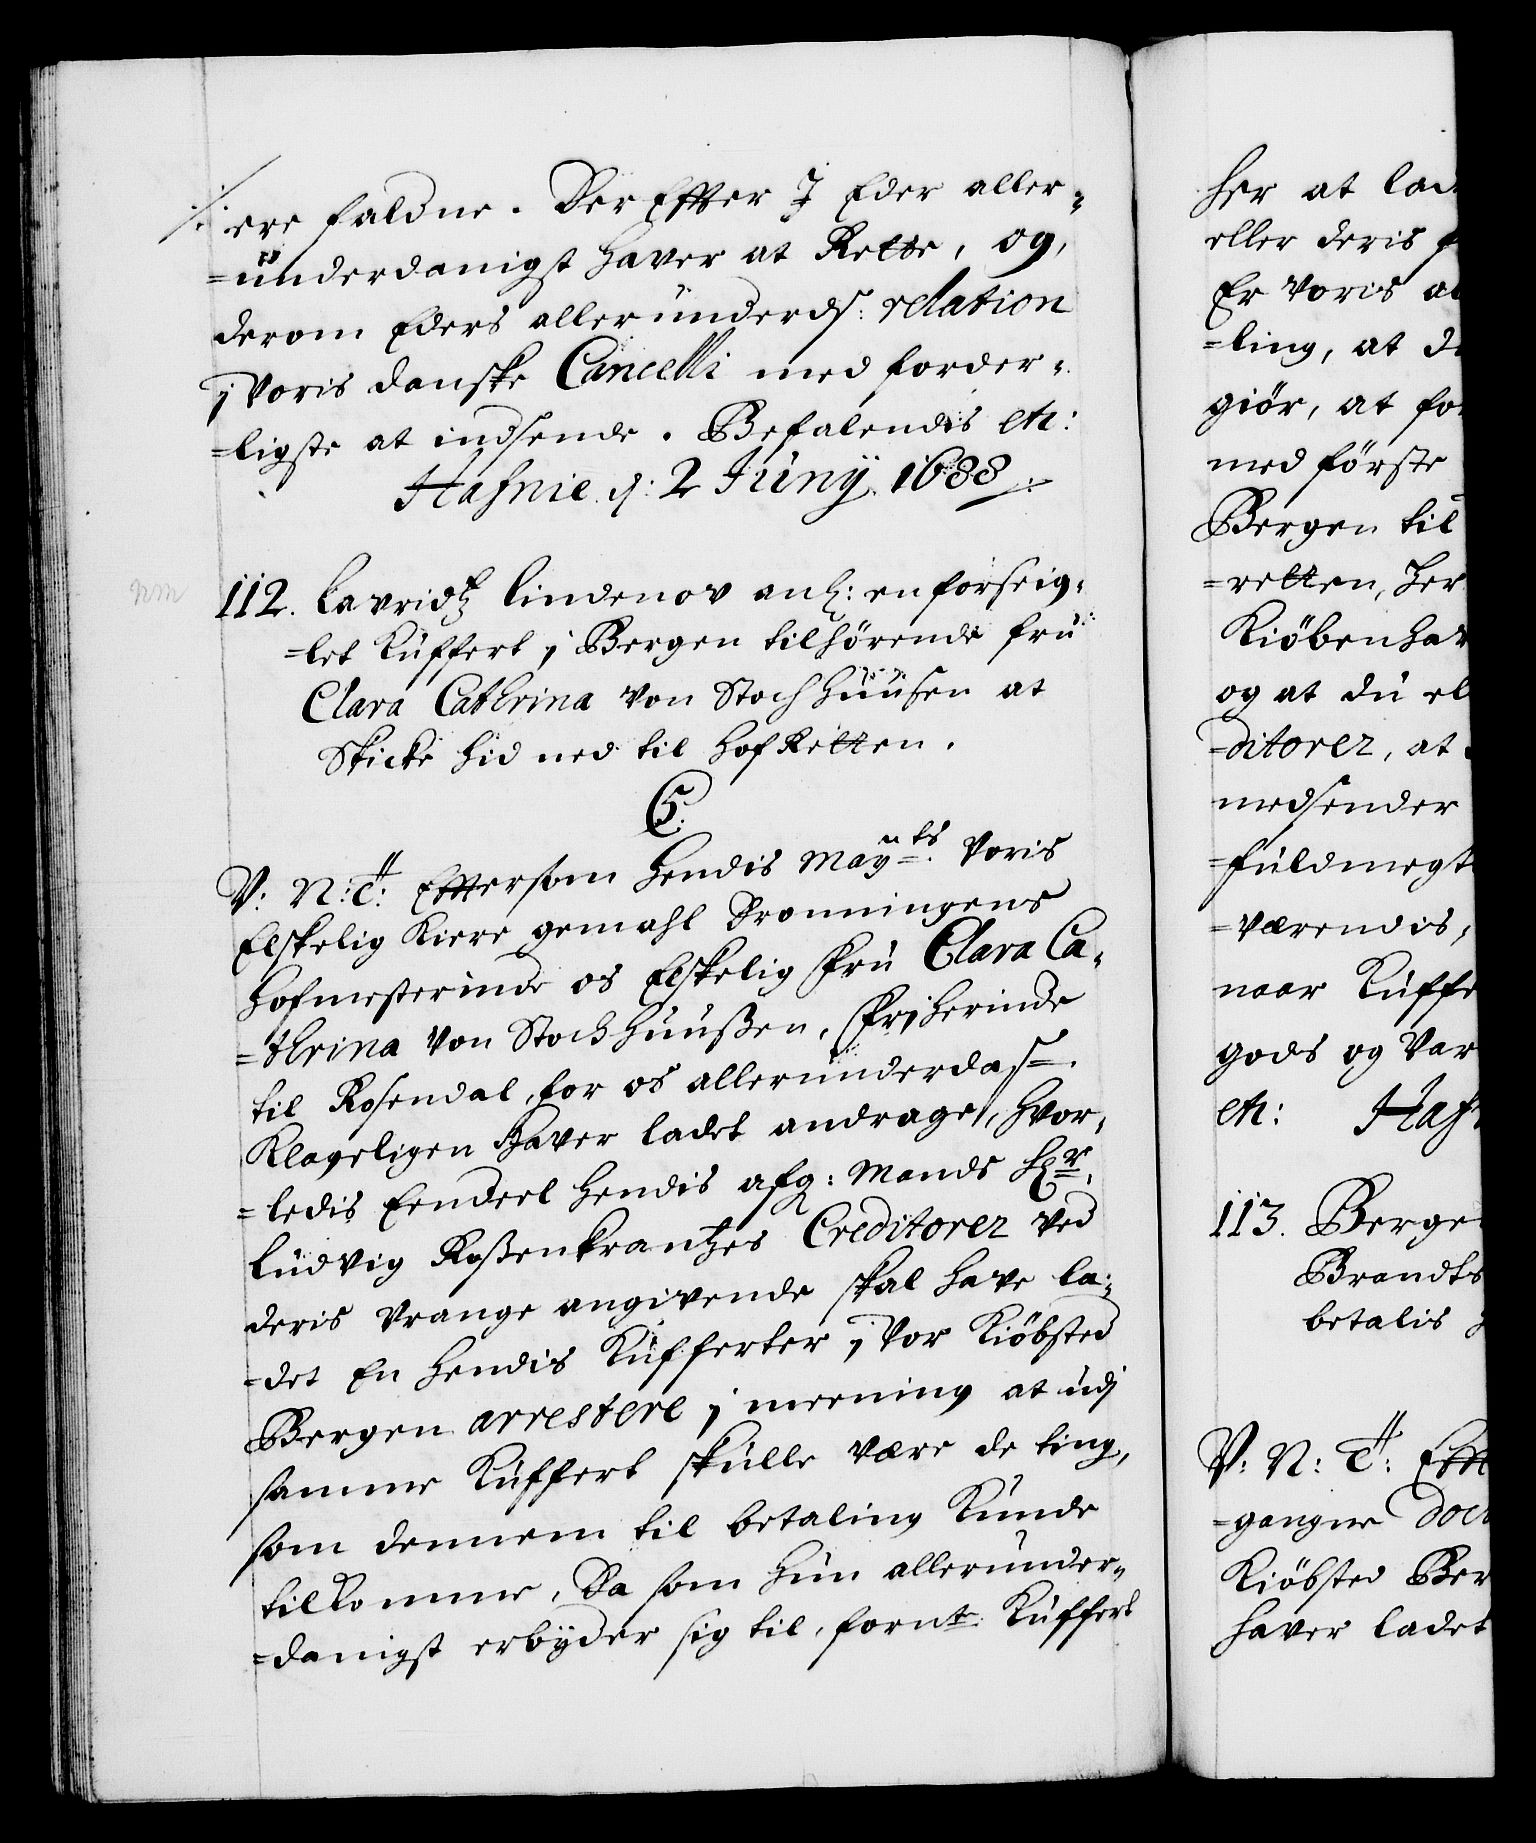 ⁒ ere faldne. Der Effter J Eder aller-
=ünderdanigst haver at Rette, og,
derom Eders alleründerds: relation
j Voris danske Cancelli med forder-
=ligste at indsende. Befalendis etc:
Hafnie d: 2 Junÿ 1688 ⁒
nm
112. Lavridtz Lindenov anl: en forseig-
=let Kuffert j Bergen tilhörende frü
Clara Cathrina von Stochhüüsen at
Skicke hid ned til Hof Retten.
C5.
V: N: T: Effter som Hendis Mayts: Voris
Elskelig Kiere gemahl Dronningens
Hofmesterinde os Elskelig Frü Clara Ca-
=thrina von Stochhüüßen, Friherinde
til Rosendal, for os alleründerdast.
Klageligen haver ladet andrage, hvor-
=ledis Eendeel Hendis afg: Mands Hr.
Lüdvig Roßenkrantzes Creditorer ved
deris vrange angivende skal have la-
=det En Hendis Küfferter j Vor Kiöbsted
Bergen arrestere j meening at udj
samme Küffert skülle være de ting,
som dennem til betaling Künde
tilkomme, Da som Hün alleründer-
=danigst erbÿder sig til, fornte Küffert
her at lad
eller deris
Er Voris al
=ling, at d
giör, at for
med förste
Bergen til
=retten, her
Kiöbenhav
og at dü el
=ditorer, at
nedsender
=füldmegt
=værendis,
naar Küffe
gods og Var
etc: Haf
113. Berge
Brandts
betalis
V: N: T: Eff
=gangne Doct
Kiöbsted Ber
haver ladet